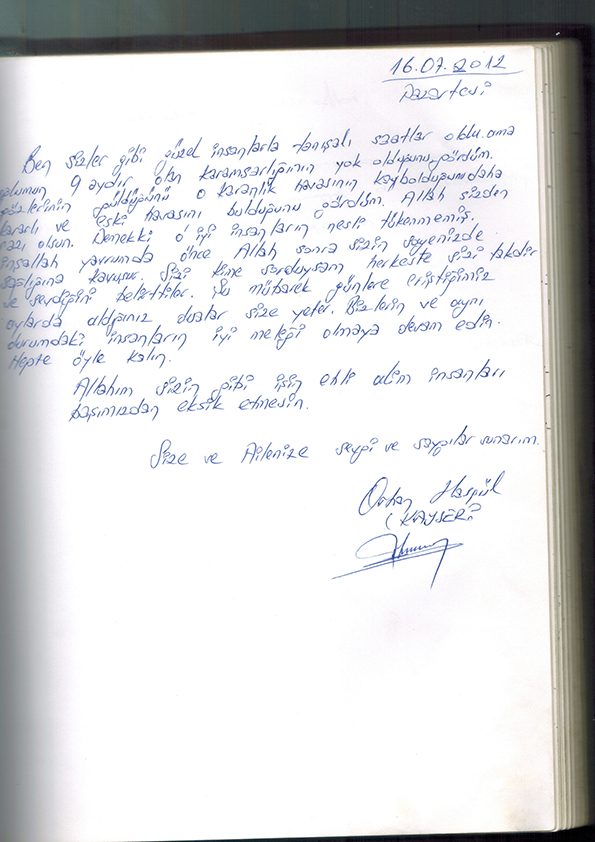 16.07.2012
Pazartesi
Ben sizler gibi güzel insanlarla tanışalı saatlar oldu.ama
oğlumun 9 aydır olan karamsarlığının yok olduğunu gördüm.
gözlerinin güldüğünü o karanlık havasının kaybolduğunu daha
kararlı ve eski havasını bulduğunu gördüm. Allah sizden
razı olsun. Demekki o iyi insanların nesli tükenmemiş.
İnşallah yavrumda önce Allah sonra sizin sayenizde
sağlığına kavuşur. Sizi kime sorduysam herkeste sizi takdir
ve sevdiğini belirttiler. şu mübarek günlere eriştiğimiz
aylarda aldığınız dualar size yeter. Bizlerin ve aynı
durumdaki insanların iyi meleği olmaya devam edin.
Hepte öyle kalın.
Allahım sizin gibi işin ehli alim insanları
başımızdan eksik etmesin.
Size ve Ailenize sevgi ve saygılar sunarım.
Orhan Hasgül
KAYSERİ